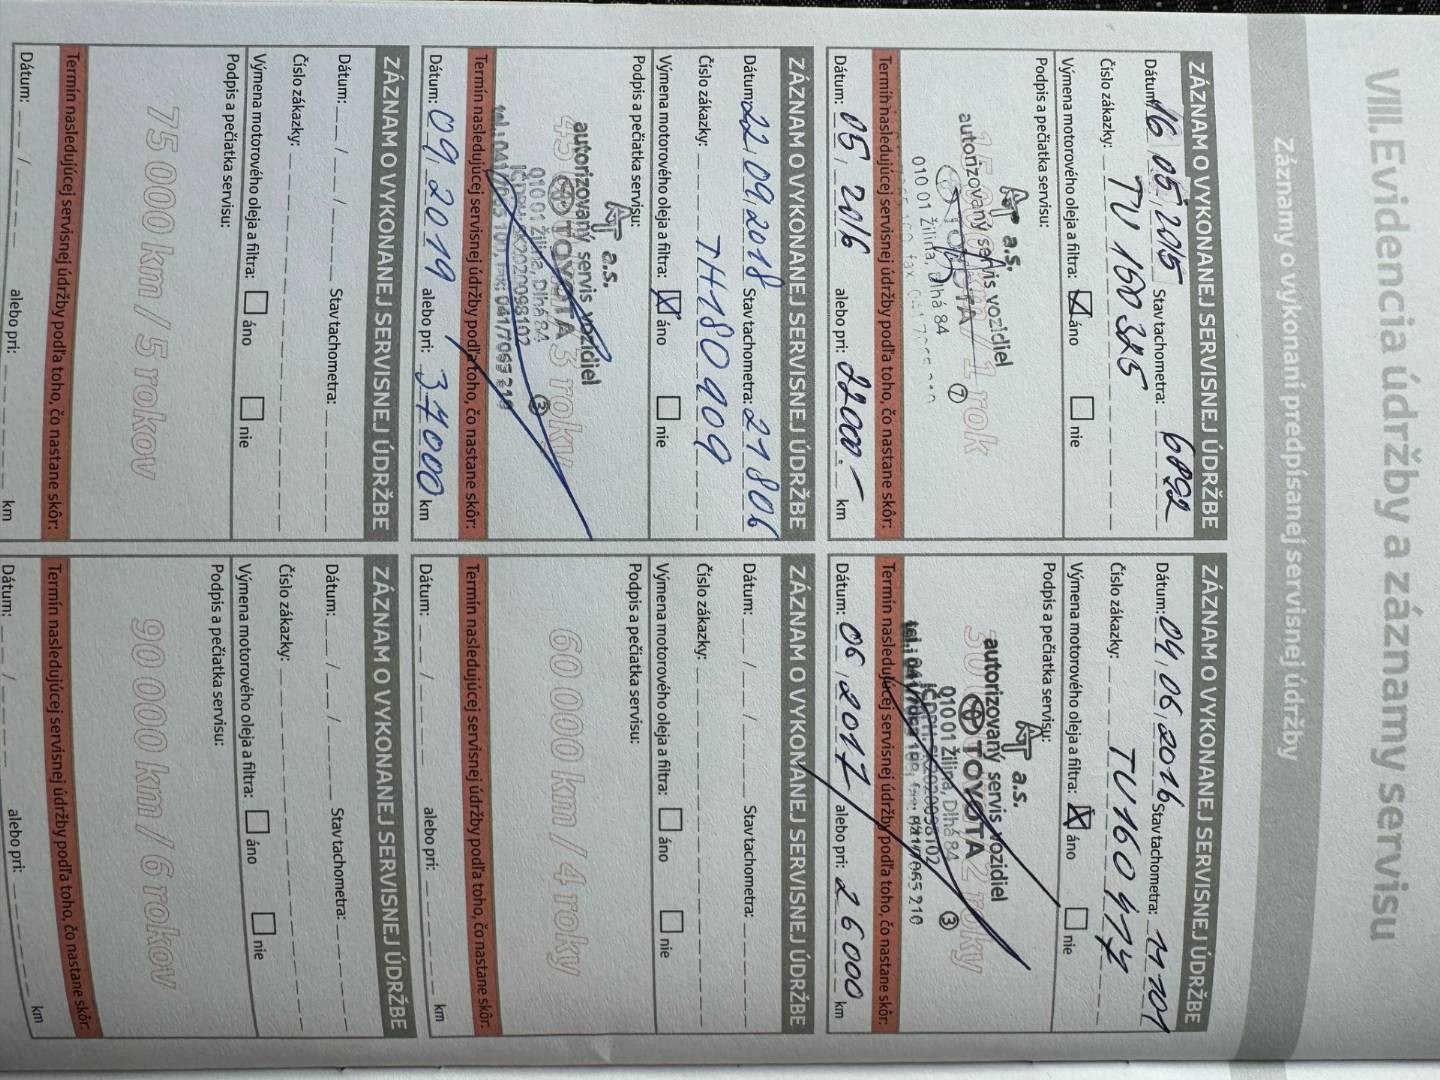 VIII. Evidencia údržby a záznamy servisu
Záznamy o vykonaní predpísanej servisnej údržby
ZÁZNAM O VYKONANEJ SERVISNEJ ÚDRŽBE
Dátum: 16 05 2015 Stav tachometra: 6892
Číslo zákazky: TU 150385
Výmena motorového oleja a filtra: áno nie
Podpis a pečiatka servisu:
15 000 km / 1 rok
AT a.s.
autorizovaný servis vozidiel
TOYOTA
010 01 Žilina, Dlhá 84
7
Termín nasledujúcej servisnej údržby podľa toho, čo nastane skôr:
Dátum: 05, 2016 alebo pri: 22000.- km
ZÁZNAM O VYKONANEJ SERVISNEJ ÚDRŽBE
Dátum: 04, 06, 2016 Stav tachometra: 11101
Číslo zákazky: TU160477
Výmena motorového oleja a filtra: áno nie
Podpis a pečiatka servisu:
AT a.s.
autorizovaný servis vozidiel
TOYOTA
010 01 Žilina, Dlhá 84
IČ DPH: SK2020098102
3
Termín nasledujúcej servisnej údržby podľa toho, čo nastane skôr:
Dátum: 06, 2017 alebo pri: 26000 km
ZÁZNAM O VYKONANEJ SERVISNEJ ÚDRŽBE
Dátum: 22, 09, 2018 Stav tachometra: 21806
Číslo zákazky: TH180909
Výmena motorového oleja a filtra: áno nie
Podpis a pečiatka servisu:
AT a.s.
autorizovaný servis vozidiel
TOYOTA
010 01 Žilina, Dlhá 84
IČ DPH: SK2020098102
3
Termín nasledujúcej servisnej údržby podľa toho, čo nastane skôr:
Dátum: 09, 2019 alebo pri: 37000 km
ZÁZNAM O VYKONANEJ SERVISNEJ ÚDRŽBE
Dátum: __ / __ / ____ Stav tachometra:
Číslo zákazky:
Výmena motorového oleja a filtra: áno nie
Podpis a pečiatka servisu:
60 000 km / 4 roky
Termín nasledujúcej servisnej údržby podľa toho, čo nastane skôr:
Dátum: __ / ____ alebo pri: km
ZÁZNAM O VYKONANEJ SERVISNEJ ÚDRŽBE
Dátum: __ / __ / ____ Stav tachometra:
Číslo zákazky:
Výmena motorového oleja a filtra: áno nie
Podpis a pečiatka servisu:
75 000 km / 5 rokov
Termín nasledujúcej servisnej údržby podľa toho, čo nastane skôr:
Dátum: __ / ____ alebo pri: km
ZÁZNAM O VYKONANEJ SERVISNEJ ÚDRŽBE
Dátum: __ / __ / ____ Stav tachometra:
Číslo zákazky:
Výmena motorového oleja a filtra: áno nie
Podpis a pečiatka servisu:
90 000 km / 6 rokov
Termín nasledujúcej servisnej údržby podľa toho, čo nastane skôr:
Dátum: __ / ____ alebo pri: km